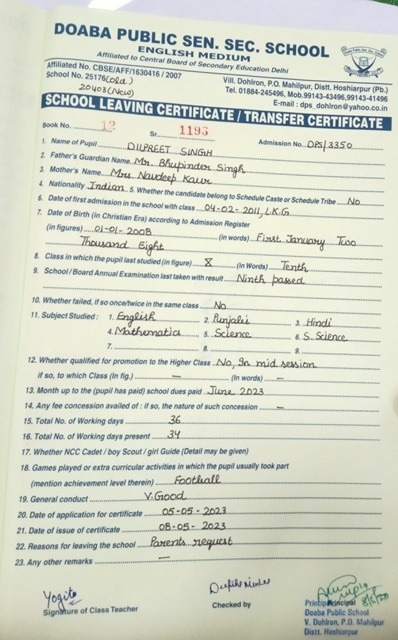 DOABA PUBLIC SEN. SEC. SCHOOL
ENGLISH MEDIUM
Affiliated to Central Board of Secondary Education Delhi
Affiliated No. CBSE/AFF/1630416 / 2007
School No. 25176 (old)
20403 (New)
Vill. Dohlron, P.O. Mahilpur, Distt. Hoshiarpur (Pb.)
Tel. 01884-245496, Mob.99143-43496,99143-41496
E-mail : dps_dohlron@yahoo.co.in
SCHOOL LEAVING CERTIFICATE / TRANSFER CERTIFICATE
Book No. 12 Sr. 1193 Admission No. DPS/3350
1. Name of Pupil DILPREET SINGH
2. Father's Guardian Name Mr. Bhupinder Singh
3. Mother's Name Mrs. Navdeep Kaur
4. Nationality Indian 5. Whether the candidate belong to Schedule Caste or Schedule Tribe No
6. Date of first admission in the school with class 04-02-2011, L.K.G
7. Date of Birth (in Christian Era) according to Admission Register
(in figures) 01-01-2008 (in words) First January Two
Thousand Eight
8. Class in which the pupil last studied (in figure) X (in Words) Tenth
9. School / Board Annual Examination last taken with result Ninth passed
10. Whether failed, if so once/twice in the same class No
11. Subject Studied : 1. English 2. Punjabi 3. Hindi
4. Mathematics 5. Science 6. S. Science
7. 8. 9.
12. Whether qualified for promotion to the Higher Class No, In mid session
if so, to which Class (In fig.) — (In words) —
13. Month up to the (pupil has paid) school dues paid June 2023
14. Any fee concession availed of : if so, the nature of such concession —
15. Total No. of Working days 36
16. Total No. of Working days present 34
17. Whether NCC Cadet / boy Scout / girl Guide (Detail may be given)
18. Games played or extra curricular activities in which the pupil usually took part
(mention achievement level therein) Football
19. General conduct V.Good
20. Date of application for certificate 05-05-2023
21. Date of issue of certificate 08-05-2023
22. Reasons for leaving the school Parents request
23. Any other remarks —
Yogita
Signature of Class Teacher
Checked by
Principal
Doaba Public School
V. Dohlron, P.O. Mahilpur
Distt. Hoshiarpur